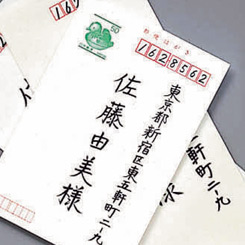 50
郵便はがき
1628562
東京都新宿区東五軒町二-九
佐藤由美様
16
軒町二-九